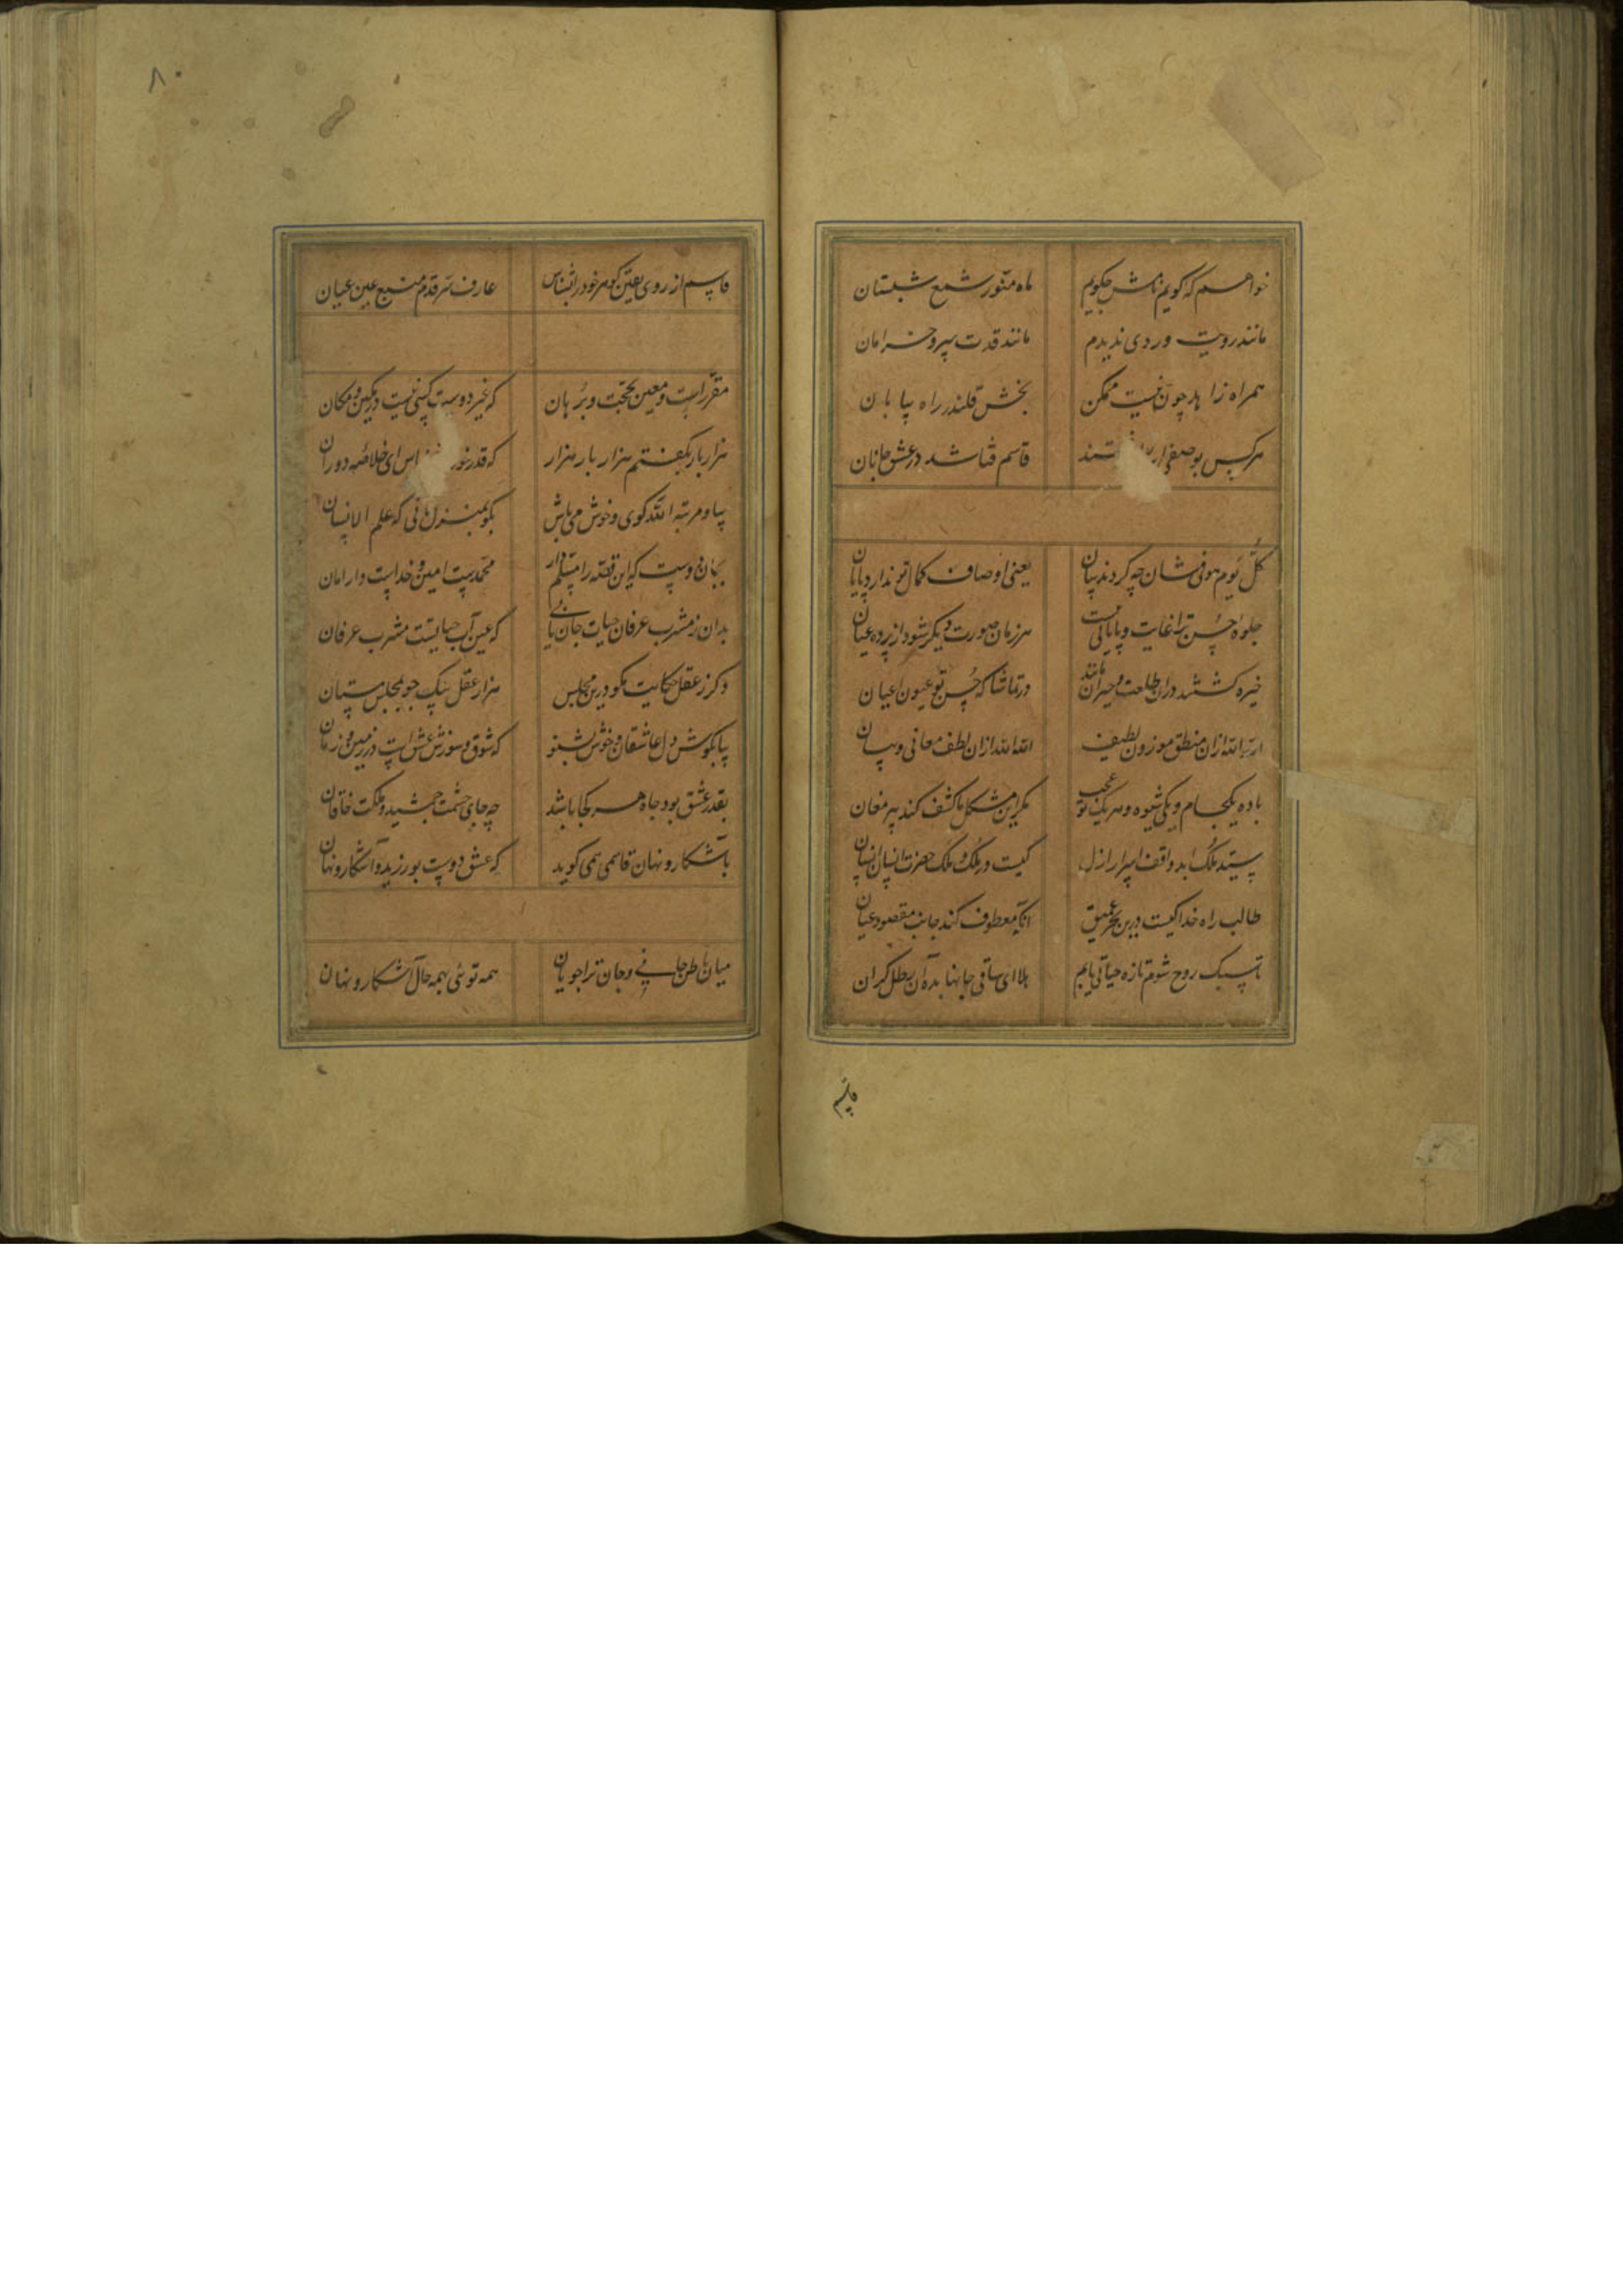 خواهم که کویم نامش چکویم
ماه منور شمع شبستان
مانند رویت وردی ندیدم
مانند قدت سرو خرامان
همراه زاهد چون نیست ممکن
بخش قلندر راه بیابان
هرکس بوصفی
قاسم فنا شد در عشق جانان
کل یوم هو فی شان چه کردند بیان
یعنی اوصاف کمال تو ندارد پایان
جلوه حسن ترا غایت و پایانی نیست
هر زمان صورت دیکر شود از پرده عیان
خیره کشتند دران طلعت و حیران ماندند
در تماشا که حسن تو عیون اعیان
الله الله ازان منطق موزون لطیف
الله الله ازان لطف معانی و بیان
باده یکجام و یکی شیوه و هر یک تو عجب
مکر این مشکل ما کشف کند پیر مغان
سید ملک ابد واقف اسرار ازل
کیست در ملک و ملک حضرت انسان انسان
طالب راه خدا کیست درین بحر عمیق
انکه معطوف کند جانب مقصود عیان
تا سبک روح شوم تازه حیاتی یابم
هلا ای ساقی جانها بده آن رطل کران
قاسم
۸۰
قاسم از روی یقین کوهر خود را بشناس
عارف سر قدم منبع عین عیان
مقررست و معین بحجت و برهان
که غیر دوست کسی نیست در مکین و مکان
هزار بار بکفتم هزار بار هزار
که قدر خود اس ای خلاصه دوران
بیا و مرتبه الله کوی و خوش می باش
بکو بمنزل ثانی که علم الانسان
بجان دوست که این قصه را مسلم دار
محمدست امین و خداست دار امان
بدان ز مشرب عرفان حیات جان یابی
که عین آب حیاتست مشرب عرفان
دکر ز عقل حکایت مکو درین مجلس
هزار عقل بیک جو بمجلس مستان
بیا بکوش دل عاشقان و خوش بشنو
که شوق و سوزش عشق است در زمین و زمان
بقدر عشق بود جاه هر کجا باشد
چه جای حشمت جمشید و ملکت خاقان
بآشکار و نهان قاسمی همی کوید
که عشق دوست بورزید و آشکار و نهان
میان باطن جانی و جان ترا جویان
همه توئی بهمه حال آشکار و نهان